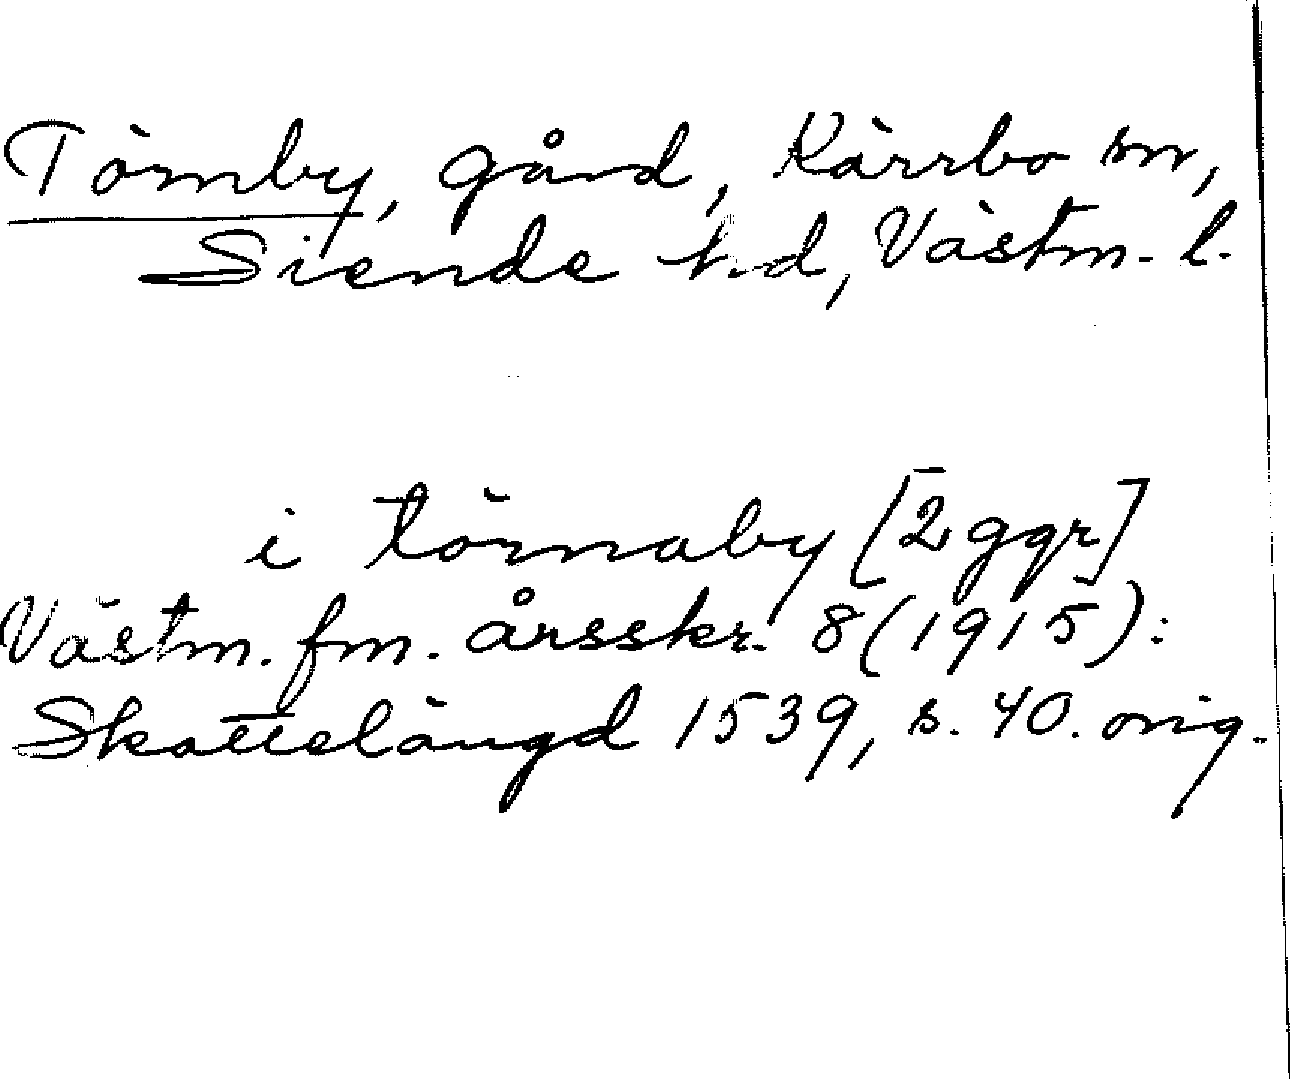 Törnby, gård, Kärrbo sn,
Siende hd, Västm. l.
i törnaby [2 ggr]
Västm. fm. årsskr. 8 (1915):
Skattelängd 1539, s. 40. orig.